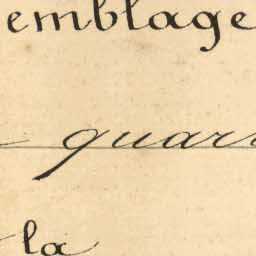 emblage
quar
la